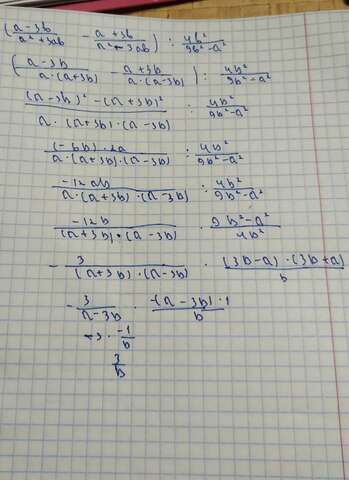 (a-3b/a²+3ab - a+3b/a²-3ab) : 4b²/9b²-a²
(a-3b/a·(a+3b) - a+3b/a·(a-3b)) : 4b²/9b²-a²
(a-3b)²-(a+3b)²/a·(a+3b)·(a-3b) : 4b²/9b²-a²
(-6b)·2a/a·(a+3b)·(a-3b) : 4b²/9b²-a²
-12ab/a·(a+3b)·(a-3b) : 4b²/9b²-a²
-12b/(a+3b)·(a-3b) · 9b²-a²/4b²
-3/(a+3b)·(a-3b) · (3b-a)·(3b+a)/b
-3/a-3b · -(a-3b)·1/b
-3·-1/b
3/b